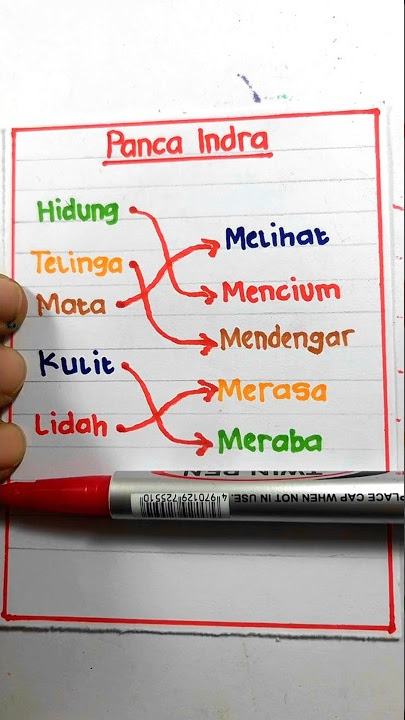 Panca Indra
Hidung
Telinga
Mata
Kulit
Lidah
Melihat
Mencium
Mendengar
Merasa
Meraba
TWIN PEN
PLACE CAP WHEN NOT IN USE.
4 970129 725510